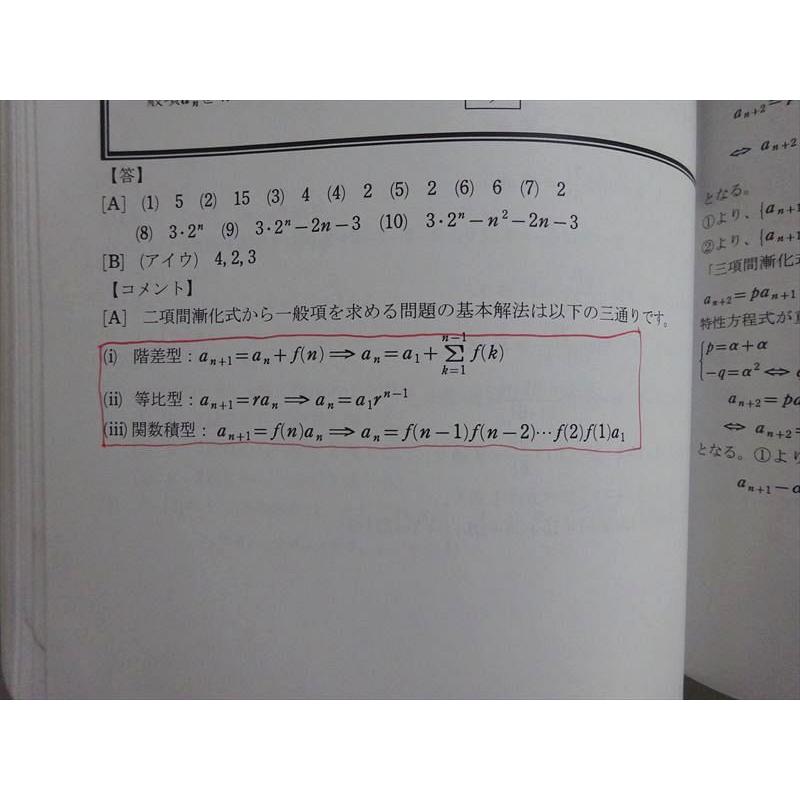 【答】
[A] (1) 5 (2) 15 (3) 4 (4) 2 (5) 2 (6) 6 (7) 2
(8) 3·2ⁿ (9) 3·2ⁿ−2n−3 (10) 3·2ⁿ−n²−2n−3
[B] (アイウ) 4, 2, 3
【コメント】
[A] 二項間漸化式から一般項を求める問題の基本解法は以下の三通りです。
(i) 階差型：aₙ₊₁=aₙ+f(n)⟹aₙ=a₁+∑_{k=1}^{n−1} f(k)
(ii) 等比型：aₙ₊₁=raₙ⟹aₙ=a₁rⁿ⁻¹
(iii) 関数積型：aₙ₊₁=f(n)aₙ⟹aₙ=f(n−1)f(n−2)⋯f(2)f(1)a₁
⇔ aₙ₊₂
となる。
①より、{aₙ₊₁
②より、{aₙ₊₁
「三項間漸化式
aₙ₊₂=paₙ₊₁
特性方程式が
p=α+α
−q=α² ⇔
aₙ₊₂=pa
⇔ aₙ₊₂=
となる。①より
aₙ₊₁−a